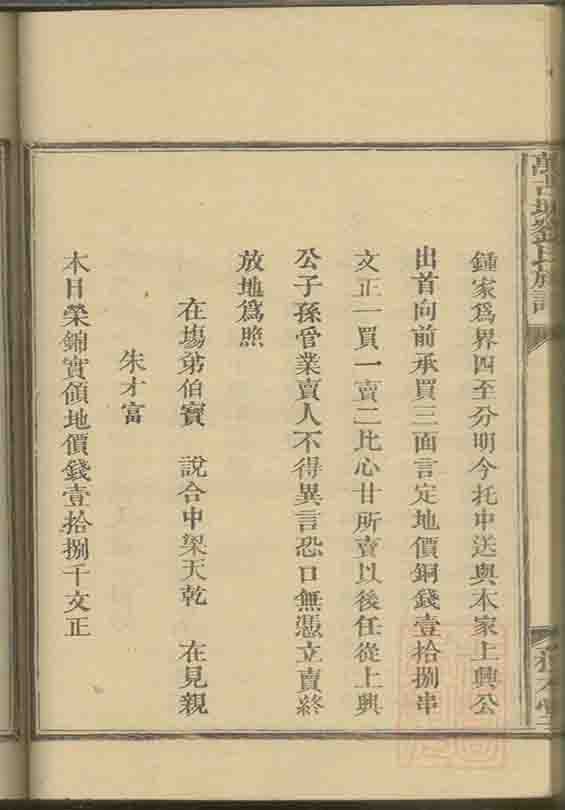 鍾家爲界四至分明今托中送與本家上興公
出首向前承買三面言定地價銅錢壹拾捌串
文正一買一賣二比心甘所賣以後任從上興
公子孫管業賣人不得異言恐口無憑立賣終
放地爲照
在塲弟伯寳　說合中梁天乾　在見親
朱才富
本日榮錦實領地價錢壹拾捌千文正